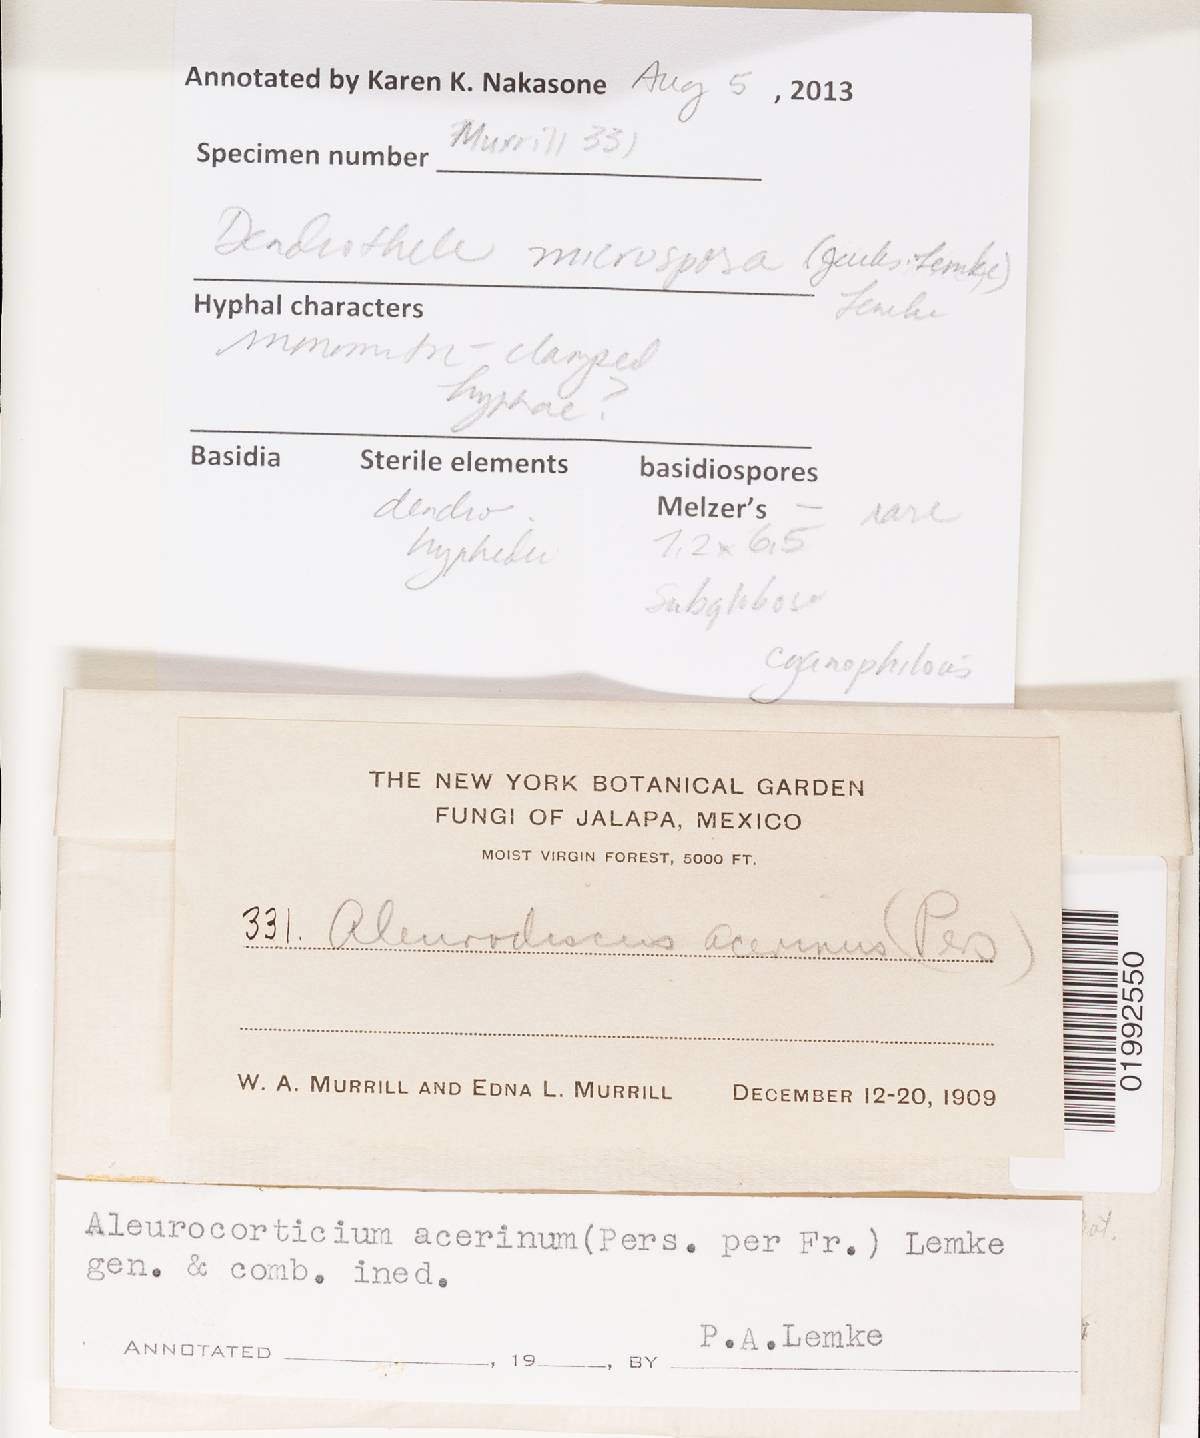 Annotated by Karen K. Nakasone Aug 5, 2013
Specimen number Murrill 331
Dendrothele microspora (Jacks. & Lemke)
Lemke
Hyphal characters
monomitic - clamped
hyphae?
Basidia Sterile elements basidiospores
dendro-
hyphidia
Melzer's – rare
7.2 x 6.5
subglobose
cyanophilous
THE NEW YORK BOTANICAL GARDEN
FUNGI OF JALAPA, MEXICO
MOIST VIRGIN FOREST, 5000 FT.
331. Aleurodiscus acerinus (Pers)
W. A. MURRILL AND EDNA L. MURRILL DECEMBER 12-20, 1909
01992550
Aleurocorticium acerinum(Pers. per Fr.) Lemke
gen. & comb. ined.
P.A.Lemke
ANNOTATED , 19 , BY